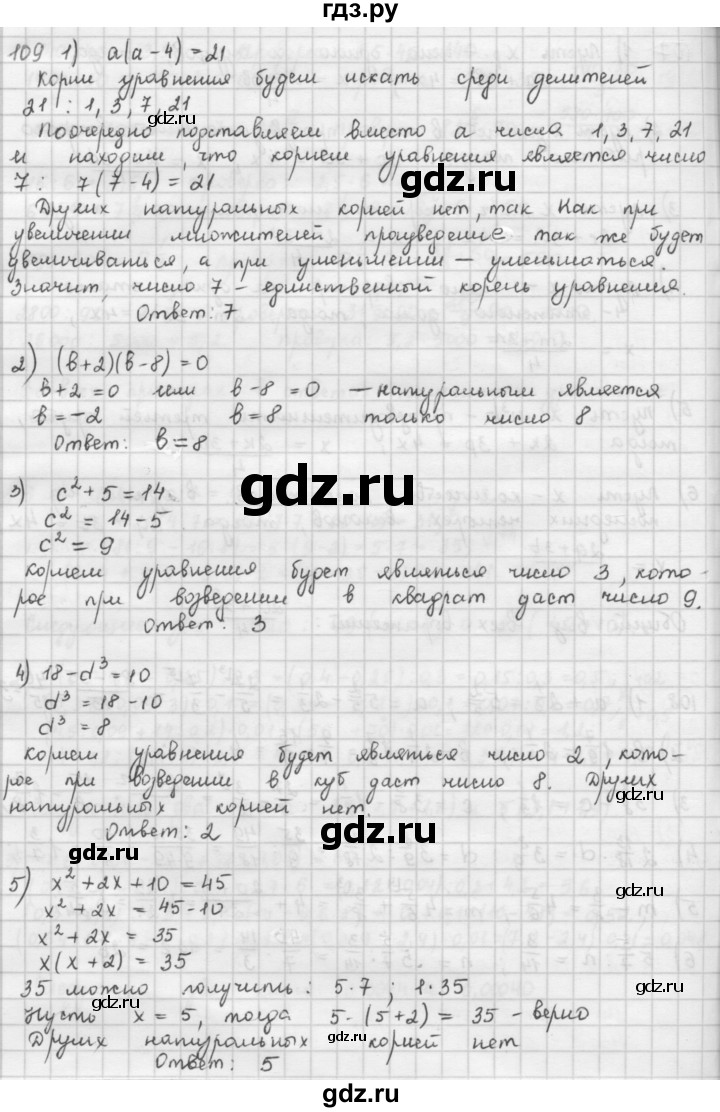 гдз.ру
109 1) a(a-4)=21
Корни уравнения будем искать среди делителей
21 : 1, 3, 7, 21
Поочередно подставляем вместо а числа 1, 3, 7, 21
и находим, что корнем уравнения является число
7: 7(7-4)=21
gdz.ru
Других натуральных корней нет, так как при
увеличении множителей произведение так же будет
увеличиваться, а при уменьшении — уменьшаться.
Значит, число 7 — единственный корень уравнения.
Ответ: 7
gdz.ru
2) (в+2)(в-8)=0
в+2=0 или в-8=0 — натуральным является
в=-2 в=8 только число 8
Ответ: в=8
gdz.ru
3) c²+5=14
c² = 14-5
c² = 9
gdz.ru
корнем уравнения будет являться число 3, кото-
рое при возведении в квадрат даст число 9.
Ответ: 3
gdz.ru
4) 18-d³=10
d³=18-10
d³=8
корнем уравнения будет являться число 2, кото-
рое при возведении в куб даст число 8. Других
натуральных корней нет.
gdz.ru
Ответ: 2
gdz.ru
gdz.ru
5) x²+2x+10=45
x²+2x=45-10
x²+2x=35
x(x+2)=35
35 можно получить: 5·7 ; 1·35
gdz.ru
Пусть x=5, тогда 5·(5+2)=35 - верно
Других натуральных корней нет
gdz.ru
Ответ: 5
gdz.ru
gdz.ru